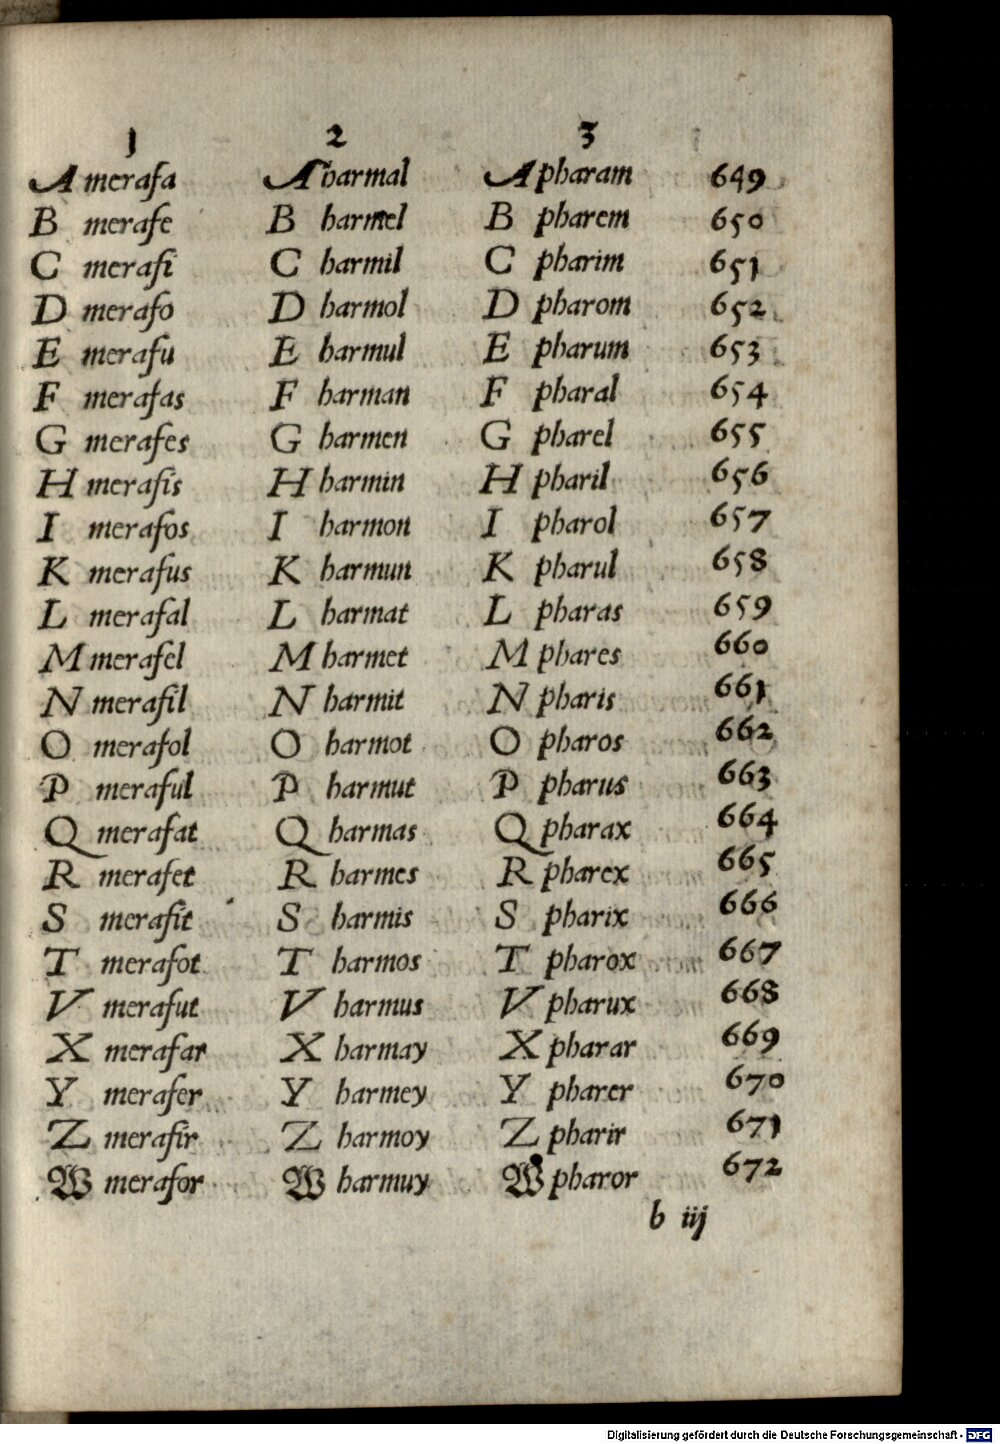 1 2 3
A merafa A harmal A pharam 649
B merafe B harmel B pharem 650
C merafi C harmil C pharim 651
D merafo D harmol D pharom 652
E merafu E harmul E pharum 653
F merafas F harman F pharal 654
G merafes G harmen G pharel 655
H merafis H harmin H pharil 656
I merafos I harmon I pharol 657
K merafus K harmun K pharul 658
L merafal L harmat L pharas 659
M merafel M harmet M phares 660
N merafil N harmit N pharis 661
O merafol O harmot O pharos 662
P meraful P harmut P pharus 663
Q merafat Q harmas Q pharax 664
R merafet R harmes R pharex 665
S merafit S harmis S pharix 666
T merafot T harmos T pharox 667
V merafut V harmus V pharux 668
X merafar X harmay X pharar 669
Y merafer Y harmey Y pharer 670
Z merafir Z harmoy Z pharir 671
W merafor W harmuy W pharor 672
b iij
Digitalisierung gefördert durch die Deutsche Forschungsgemeinschaft - DFG